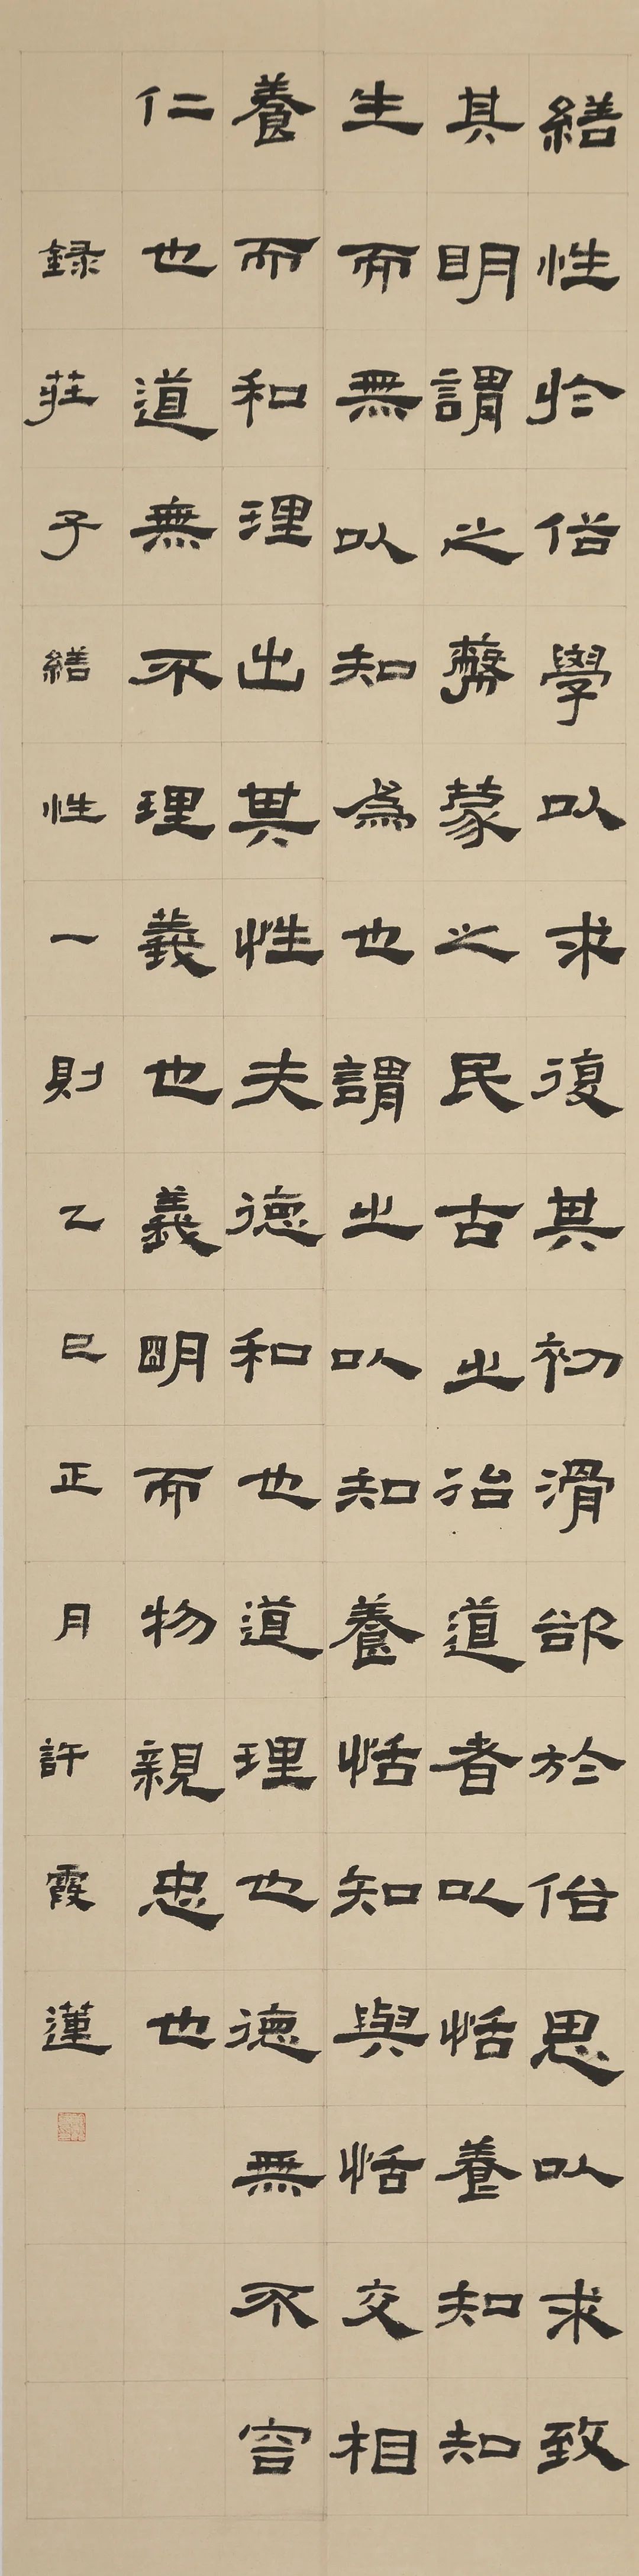 繕性於俗學以求復其初滑欲於俗思以求致
其明謂之蔽蒙之民古之治道者以恬養知知
生而無以知為也謂之以知養恬知與恬交相
養而和理出其性夫德和也道理也德無不容
仁也道無不理義也義明而物親忠也
録莊子繕性一則乙巳正月許霞蓮